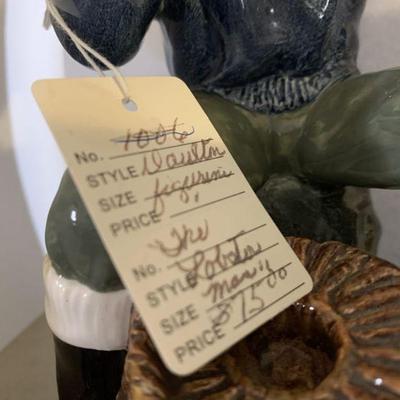 No. 1006
STYLE Doulton
SIZE figurine
PRICE
The
No. Lobster
STYLE Man"
SIZE $75.00
PRICE